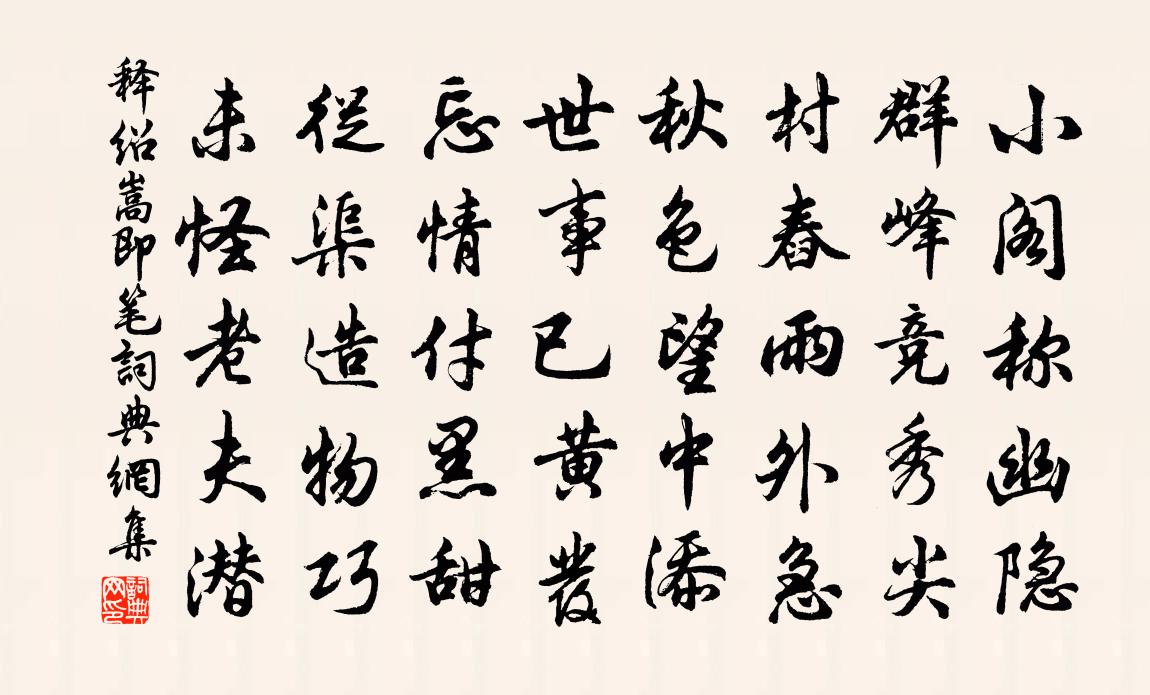 小阁称幽隐
群峰竞秀尖
村舂雨外急
秋色望中添
世事已黄发
忘情付黑甜
從渠造物巧
未怪老夫潜
释绍嵩即笔詞典網集
詞典
网印